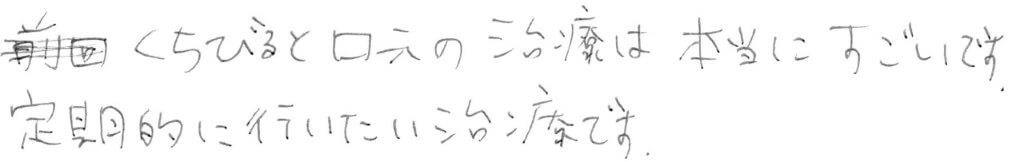 くちびると口元の治療は本当にすごいです.
定期的に行いたい治療です.